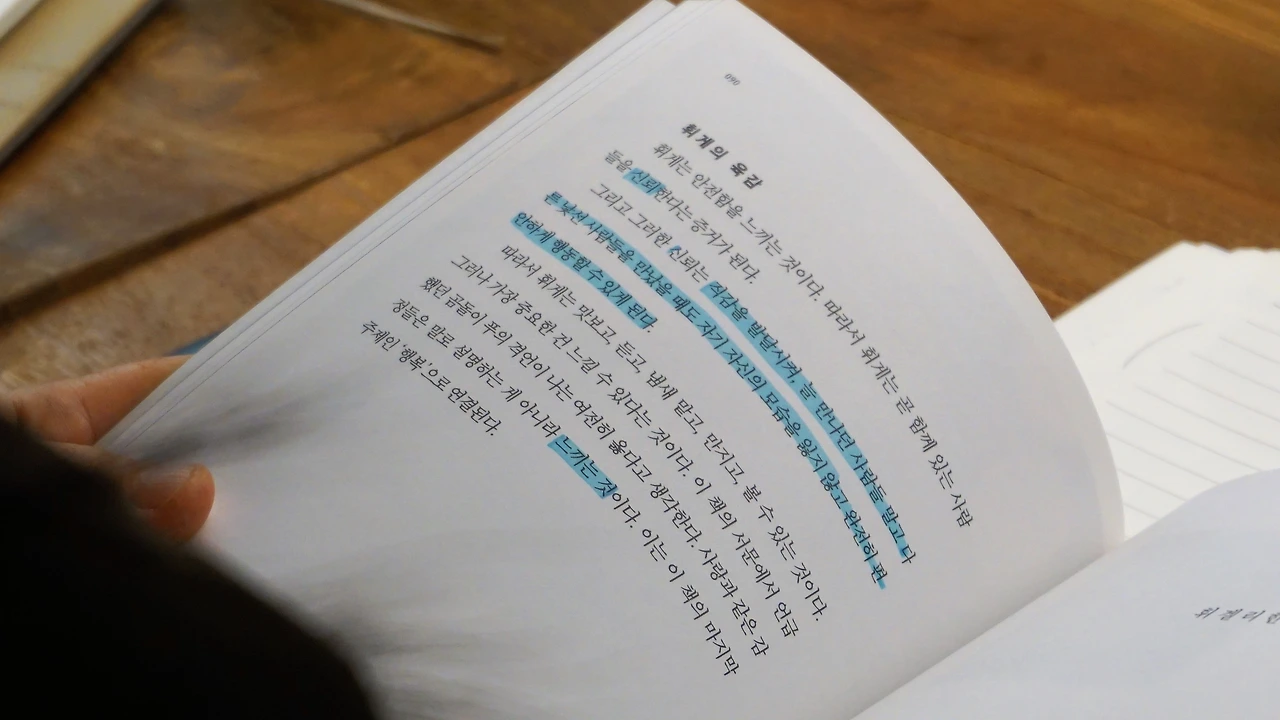 090
휘게의 육감
휘게는 안전함을 느끼는 것이다. 따라서 휘게는 곧 함께 있는 사람
들을 신뢰한다는 증거가 된다.
그리고 그러한 신뢰는 직감을 발달시켜, 늘 만나던 사람들 말고 다
른 낯선 사람들을 만났을 때도 자기 자신의 모습을 잃지 않고 완전히 편
안하게 행동할 수 있게 된다.
따라서 휘게는 맛보고, 듣고, 냄새 맡고, 만지고, 볼 수 있는 것이다.
그러나 가장 중요한 건 느낄 수 있다는 것이다. 이 책의 서문에서 언급
했던 곰돌이 푸의 격언이 나는 여전히 옳다고 생각한다. 사랑과 같은 감
정들은 말로 설명하는 게 아니라 느끼는 것이다. 이는 이 책의 마지막
주제인 '행복'으로 연결된다.